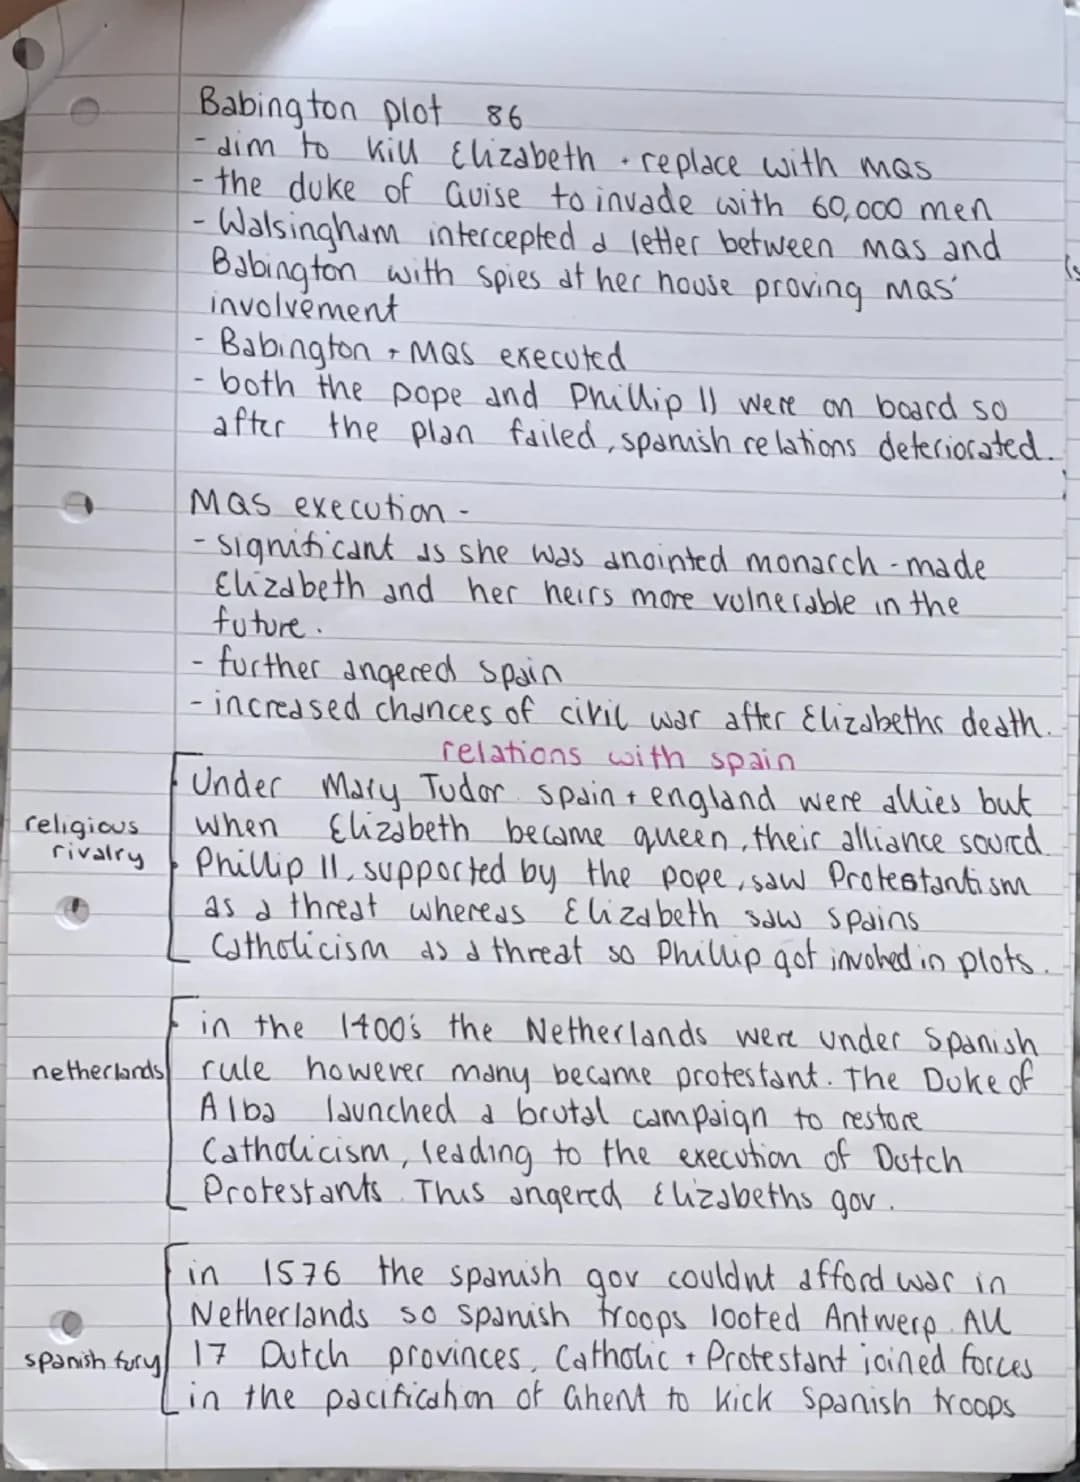 Babington plot 86
- aim to kill Elizabeth + replace with MQS
- the duke of Guise to invade with 60,000 men
- Walsingham intercepted a letter between MQS and
Babington with spies at her house proving MQS'
involvement
- Babington + MQS executed
- both the pope and Phillip II were on board so
after the plan failed, spanish relations deteriorated.
MQS execution -
- significant as she was anointed monarch - made
Elizabeth and her heirs more vulnerable in the
future.
- further angered Spain
- increased chances of civil war after Elizabeths death.
relations with spain
Under Mary Tudor spain + england were allies but
religious
when Elizabeth became queen, their alliance soured
rivalry
Phillip II, supported by the pope, saw Protestantism
as a threat whereas Elizabeth saw spains
Catholicism as a threat so Phillip got involved in plots.
in the 1400's the Netherlands were under Spanish
netherlands
rule however many became protestant. The Duke of
Alba launched a brutal campaign to restore
Catholicism, leading to the execution of Dutch
Protestants. This angered Elizabeths gov.
in 1576 the spanish gov couldnt afford war in
Netherlands so spanish troops looted Antwerp. All
spanish fury
17 Dutch provinces, Catholic + Protestant joined forces
in the pacification of Ghent to kick Spanish troops